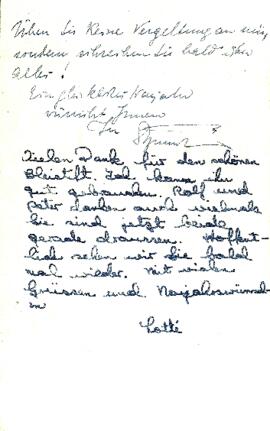 Üben Sie keine Vergeltung an mir,
sondern schreiben Sie bald über
alles!
Ein glückliches Neujahr
wünscht Ihnen
Ihr
Vielen Dank für den schönen
Bleistift. Ich kann ihn
gut gebrauchen. Rolf und
Peter danken auch vielmals
Sie sind jetzt beide
gerade draussen. Hoffent-
lich sehen wir Sie bald
mal wieder. Mit vielen
Grüssen und Neujahrswünsch-
en
Lotte